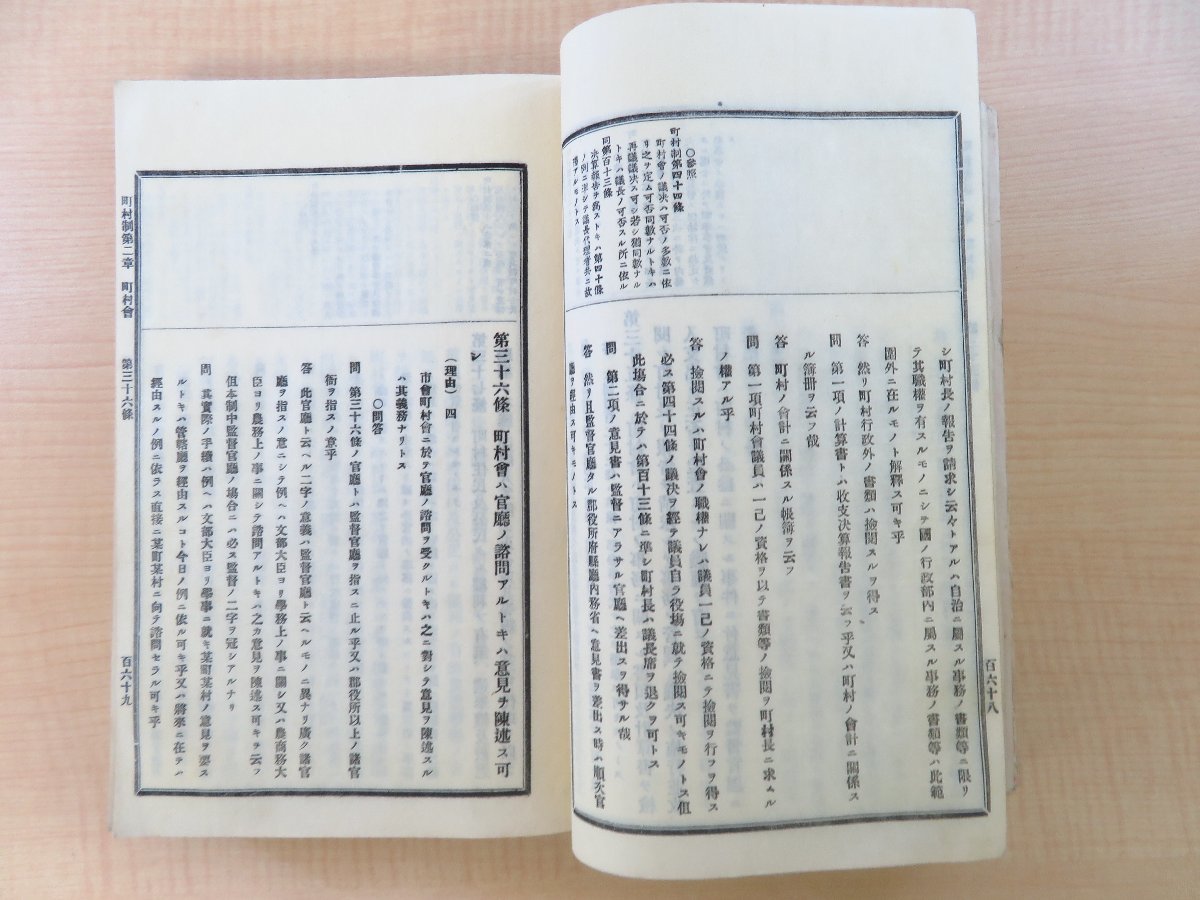 ○參照
町村制第四十四條
町村會ノ議决ハ可否ノ多數ニ依
リ之ヲ定ム可否同數ナルトキハ
再議議决ス可シ若シ猶同數ナル
トキハ議長ノ可否スル所ニ依ル
同第百十三條
决算報告ヲ爲ストキハ第四十條
ノ例ニ準シテ議長代理者共ニ故
障アルモノトス
シ町村長ノ報告ヲ請求シ云々トアルハ自治ニ屬スル事務ノ書類等ニ限リ
テ其職權ヲ有スルモノニシテ國ノ行政部内ニ屬スル事務ノ書類等ハ此範
圍外ニ在ルモノト解釋ス可キ乎
答 然リ町村行政外ノ書類ハ檢閱スルヲ得ス
問 第一項ノ計算書トハ收支决算報告書ヲ云フ乎又ハ町村ノ會計ニ關係ス
ル簿冊ヲ云フ哉
答 町村ノ會計ニ關係スル帳簿ヲ云フ
問 第一項町村會議員ハ一己ノ資格ヲ以テ書類等ノ檢閱ヲ町村長ニ求ムル
ノ權アル乎
答 檢閱スルハ町村會ノ職權ナレハ議員一己ノ資格ニテ檢閱ヲ行フヲ得ス
必ス第四十四條ノ議决ヲ經テ議員自ラ役場ニ就テ檢閱ス可キモノトス但
此塲合ニ於テハ第百十三條ニ準シ町村長ハ議長席ヲ退クヲ可トス
問 第二項ノ意見書ハ監督ニアラサル官廳ヘ差出スヲ得サル哉
答 然リ且監督官廳タル郡役所府縣廳内務省ヘ意見書ヲ差出ス時ハ順次官
廳ヲ經由ス可キモノトス
百六十八
第三十六條 町村會ハ官廳ノ諮問アルトキハ意見ヲ陳述ス可
シ
(理由) 四
市會町村會ニ於テ官廳ノ諮問ヲ受クルトキハ之ニ對シテ意見ヲ陳述スル
ハ其義務ナリトス
○問答
問 第三十六條ノ官廳トハ監督官廳ヲ指スニ止ル乎又ハ郡役所以上ノ諸官
衙ヲ指スノ意乎
答 此官廳ト云ヘル二字ノ意義ハ監督官廳ト云ヘルモノニ異ナリ廣ク諸官
廳ヲ指スノ意ニシテ例ヘハ文部大臣ヨリ學務上ノ事ニ關シ又ハ農商務大
臣ヨリ農務上ノ事ニ關シテ諮問アルトキハ之カ意見ヲ陳述ス可キヲ云フ
但本制中監督官廳ノ塲合ニハ必ス監督ノ二字ヲ冠シアルナリ
問 其實際ノ手續ハ例ヘハ文部大臣ヨリ學事ニ就キ某町某村ノ意見ヲ要ス
ルトキハ管轄廳ヲ經由スルコト今日ノ例ニ依ル可キ乎又ハ將來ニ在テハ
經由スルノ例ニ依ラス直接ニ某町某村ニ向テ諮問セラル可キ乎
町村制第二章 町村會 第三十六條
百六十九